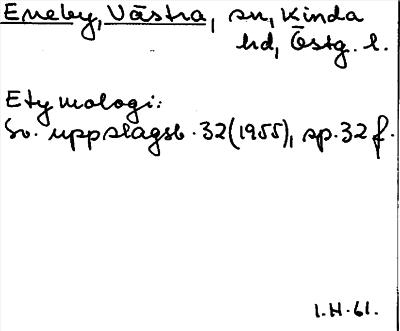 Eneby, Västra, sn, Kinda
hd, Östg. l.
Etymologi:
Sv. uppslagsb. 32 (1955), sp. 32 f.
I.H. 61.